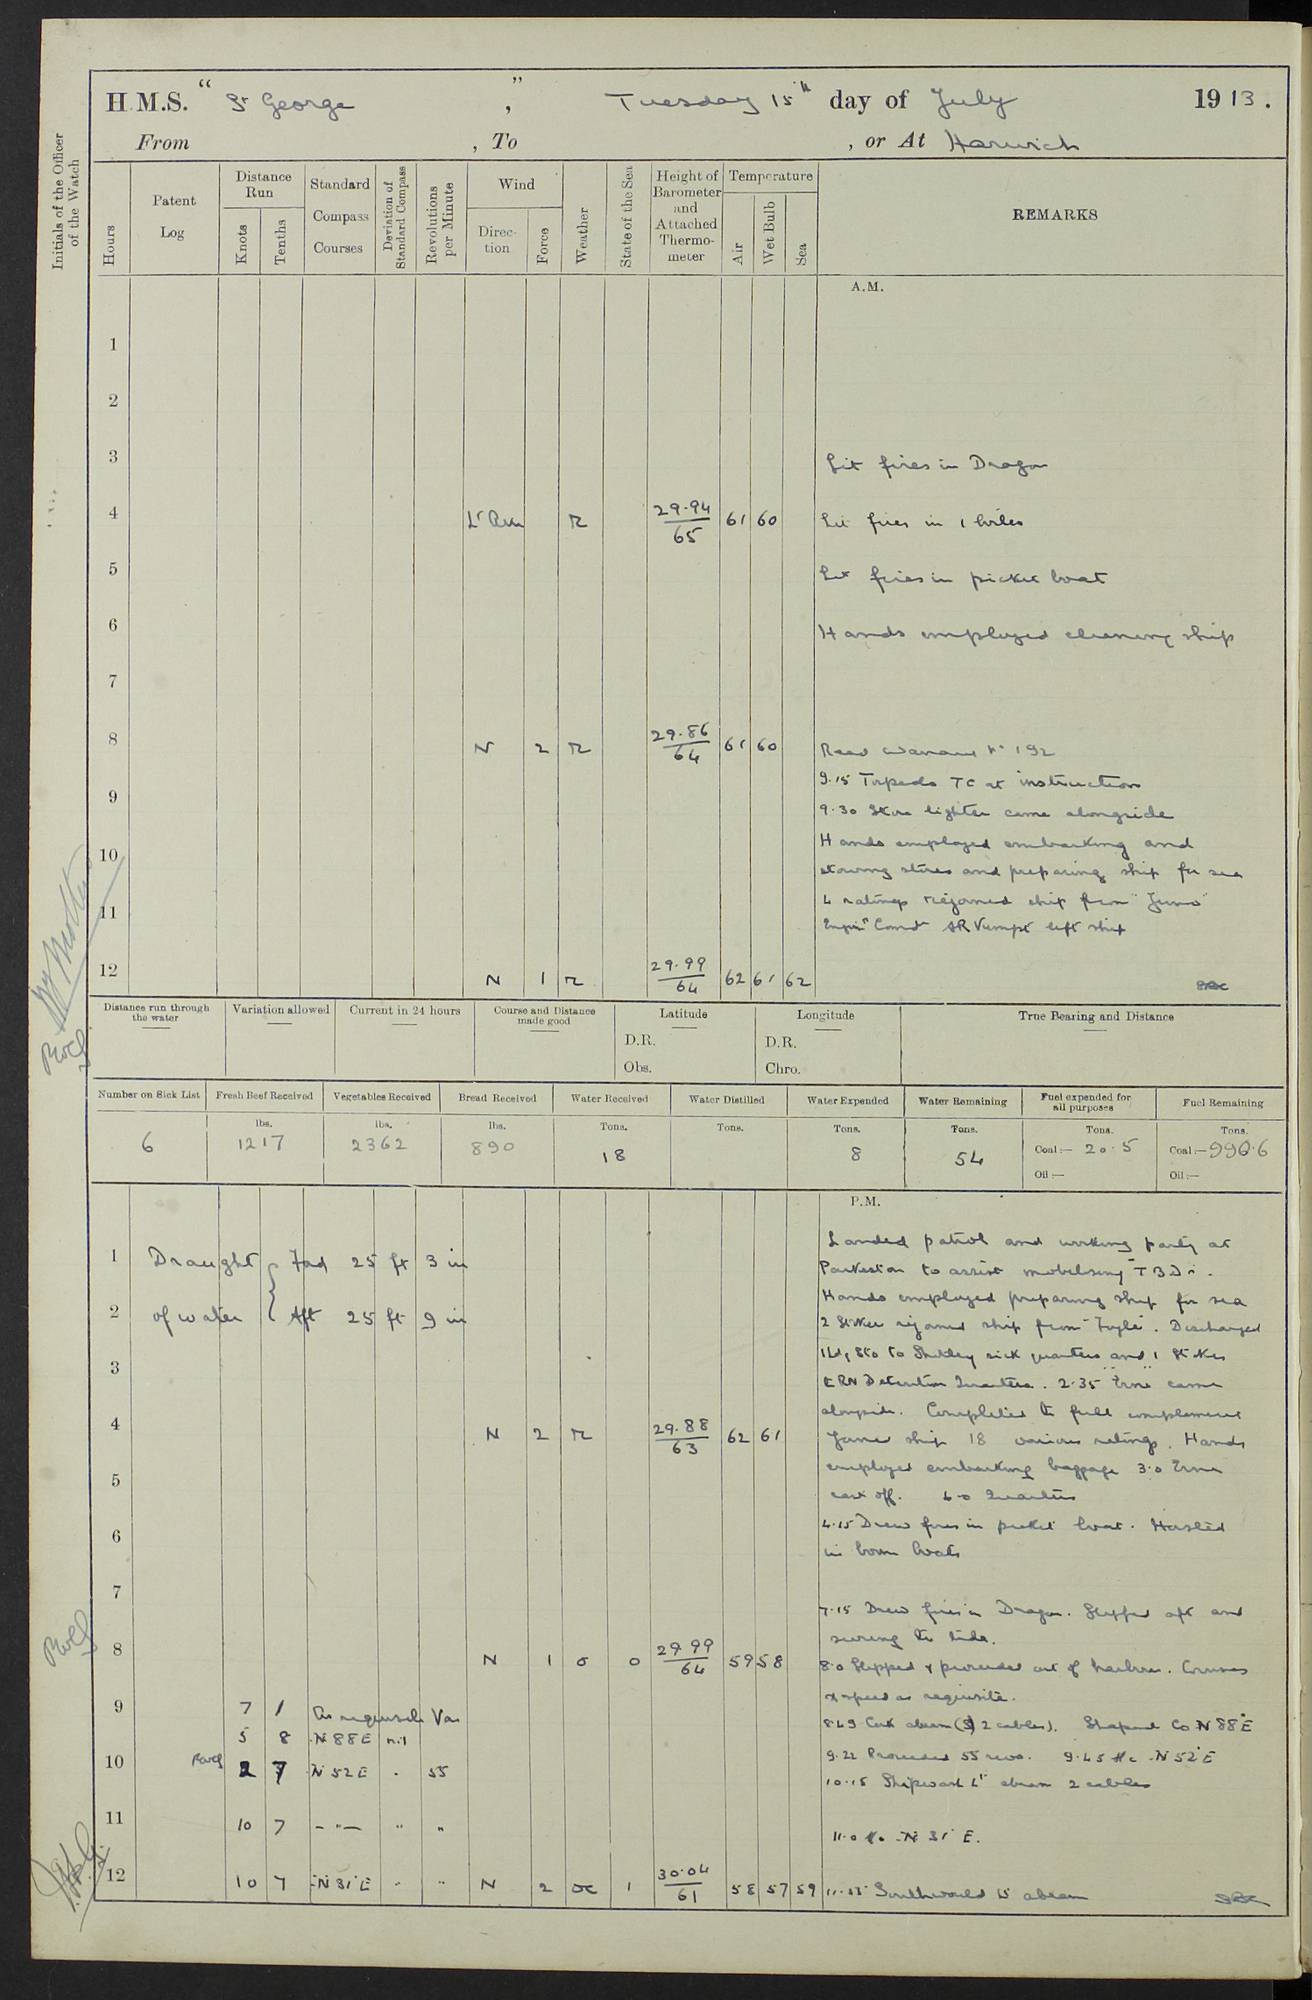 H.M.S. “ St George ”, Tuesday 15th day of July 1913.
From , To , or At Harwich
Initials of the Officer of the Watch
Hours
Patent Log
Distance Run
Knots
Tenths
Standard Compass Courses
Deviation of Standard Compass
Revolutions per Minute
Wind
Direc-tion
Force
Weather
State of the Sea
Height of Barometer and Attached Thermo-meter
Temperature
Air
Wet Bulb
Sea
REMARKS
A.M.
1
2
3 Lit fires in Dragon
4 Lt r 29.94/65 61 60 Lit fires in 1 boiler
5 Lit fires in picket boat
6 Hands employed cleaning ship
7
8 N 2 r 29.86/64 61 60 Read Warrant No 192
9.15 Torpedo TC at instruction
9 9.30 Store lighter came alongside
Hands employed embarking and
10 stowing stores and preparing ship for sea
11 4 ratings rejoined ship from "Juno"
left ship
12 N 1 r 29.99/64 62 61 62
Distance run through the water
Variation allowed
Current in 24 hours
Course and Distance made good
Latitude
D.R.
Obs.
Longitude
D.R.
Chro.
True Bearing and Distance
Number on Sick List 6
Fresh Beef Received lbs. 1217
Vegetables Received lbs. 2362
Bread Received lbs. 890
Water Received Tons. 18
Water Distilled Tons.
Water Expended Tons. 8
Water Remaining Tons. 54
Fuel expended for all purposes Tons. Coal:— 20.5 Oil:—
Fuel Remaining Tons. Coal:— 990.6 Oil:—
P.M.
Landed patrol and working party at
1 Draught { Fod 25 ft 3 in Parkeston to assist mobilising TBDs.
Hands employed preparing ship for sea
2 of water { Aft 25 ft 9 in 2 Stoker rejoined ship from "Foyle". Discharged
3 1 Ldg Sto to Shotley sick quarters and 1 Stoker
RN Detention Quarters. 2.35 "Erne" came
alongside. Completed to full complement
4 N 2 r 29.88/63 62 61 Joined ship 18 various ratings. Hands
employed embarking baggage 3.0 Erne
5 cast off. 4.0 Quarters
6 4.15 Drew fires in picket boat. Hoisted
in boom boats
7 7.15 Drew fires in Dragon. Slipped aft and
swung to tide.
8 N 1 o 0 29.99/64 59 58 8.0 Slipped & proceeded out of harbour. Courses
& speed as requisite.
9 7 1 As requisite Var 8.49 Cork abeam (S) 2 cables). Shaped Co N 88° E
5 8 N 88 E nil 9.22 Proceeded 55 revs. 9.45 A/c N 52° E
10 2 7 N 52 E " 55 10.15 Shipwash Lt abeam 2 cables
11 10 7 — " — " " 11.0 A/c N 31° E.
12 10 7 N 31° E " " N 2 oc 1 30.04/61 58 57 59 Southwold Lt abeam